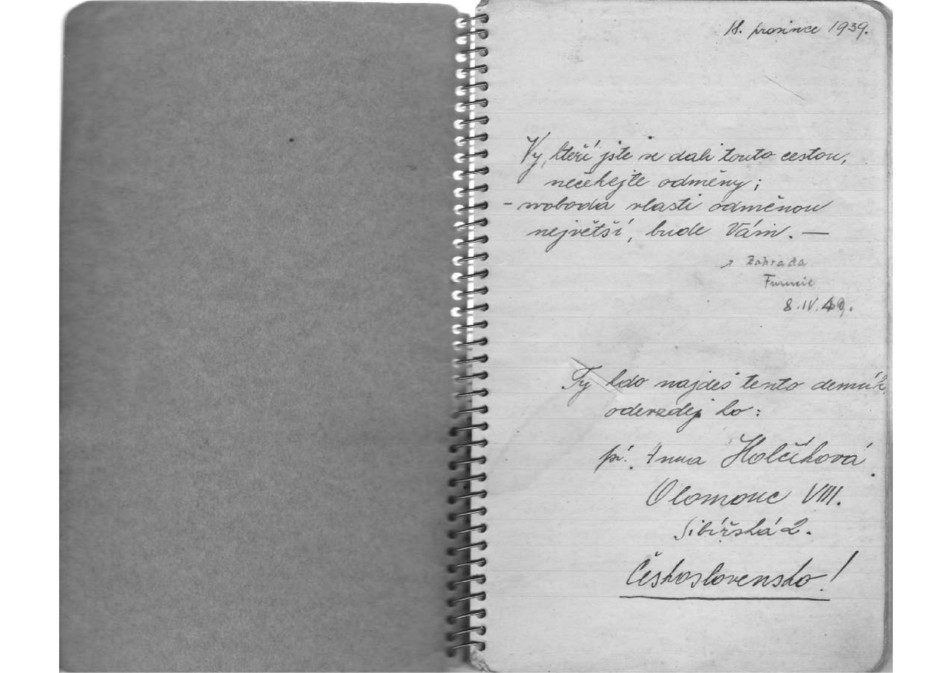 18. prosince 1939.
Vy, kteří jste se dali touto cestou,
nečekejte odměny;
- svoboda vlasti odměnou
největší, bude Vám. —
Zahrada
8. IV. 49.
Ty kdo najdeš tento deník,
odevzdej ho:
pí. Anna Holčíková
Olomouc VIII.
Sibiřská 2.
Československo!